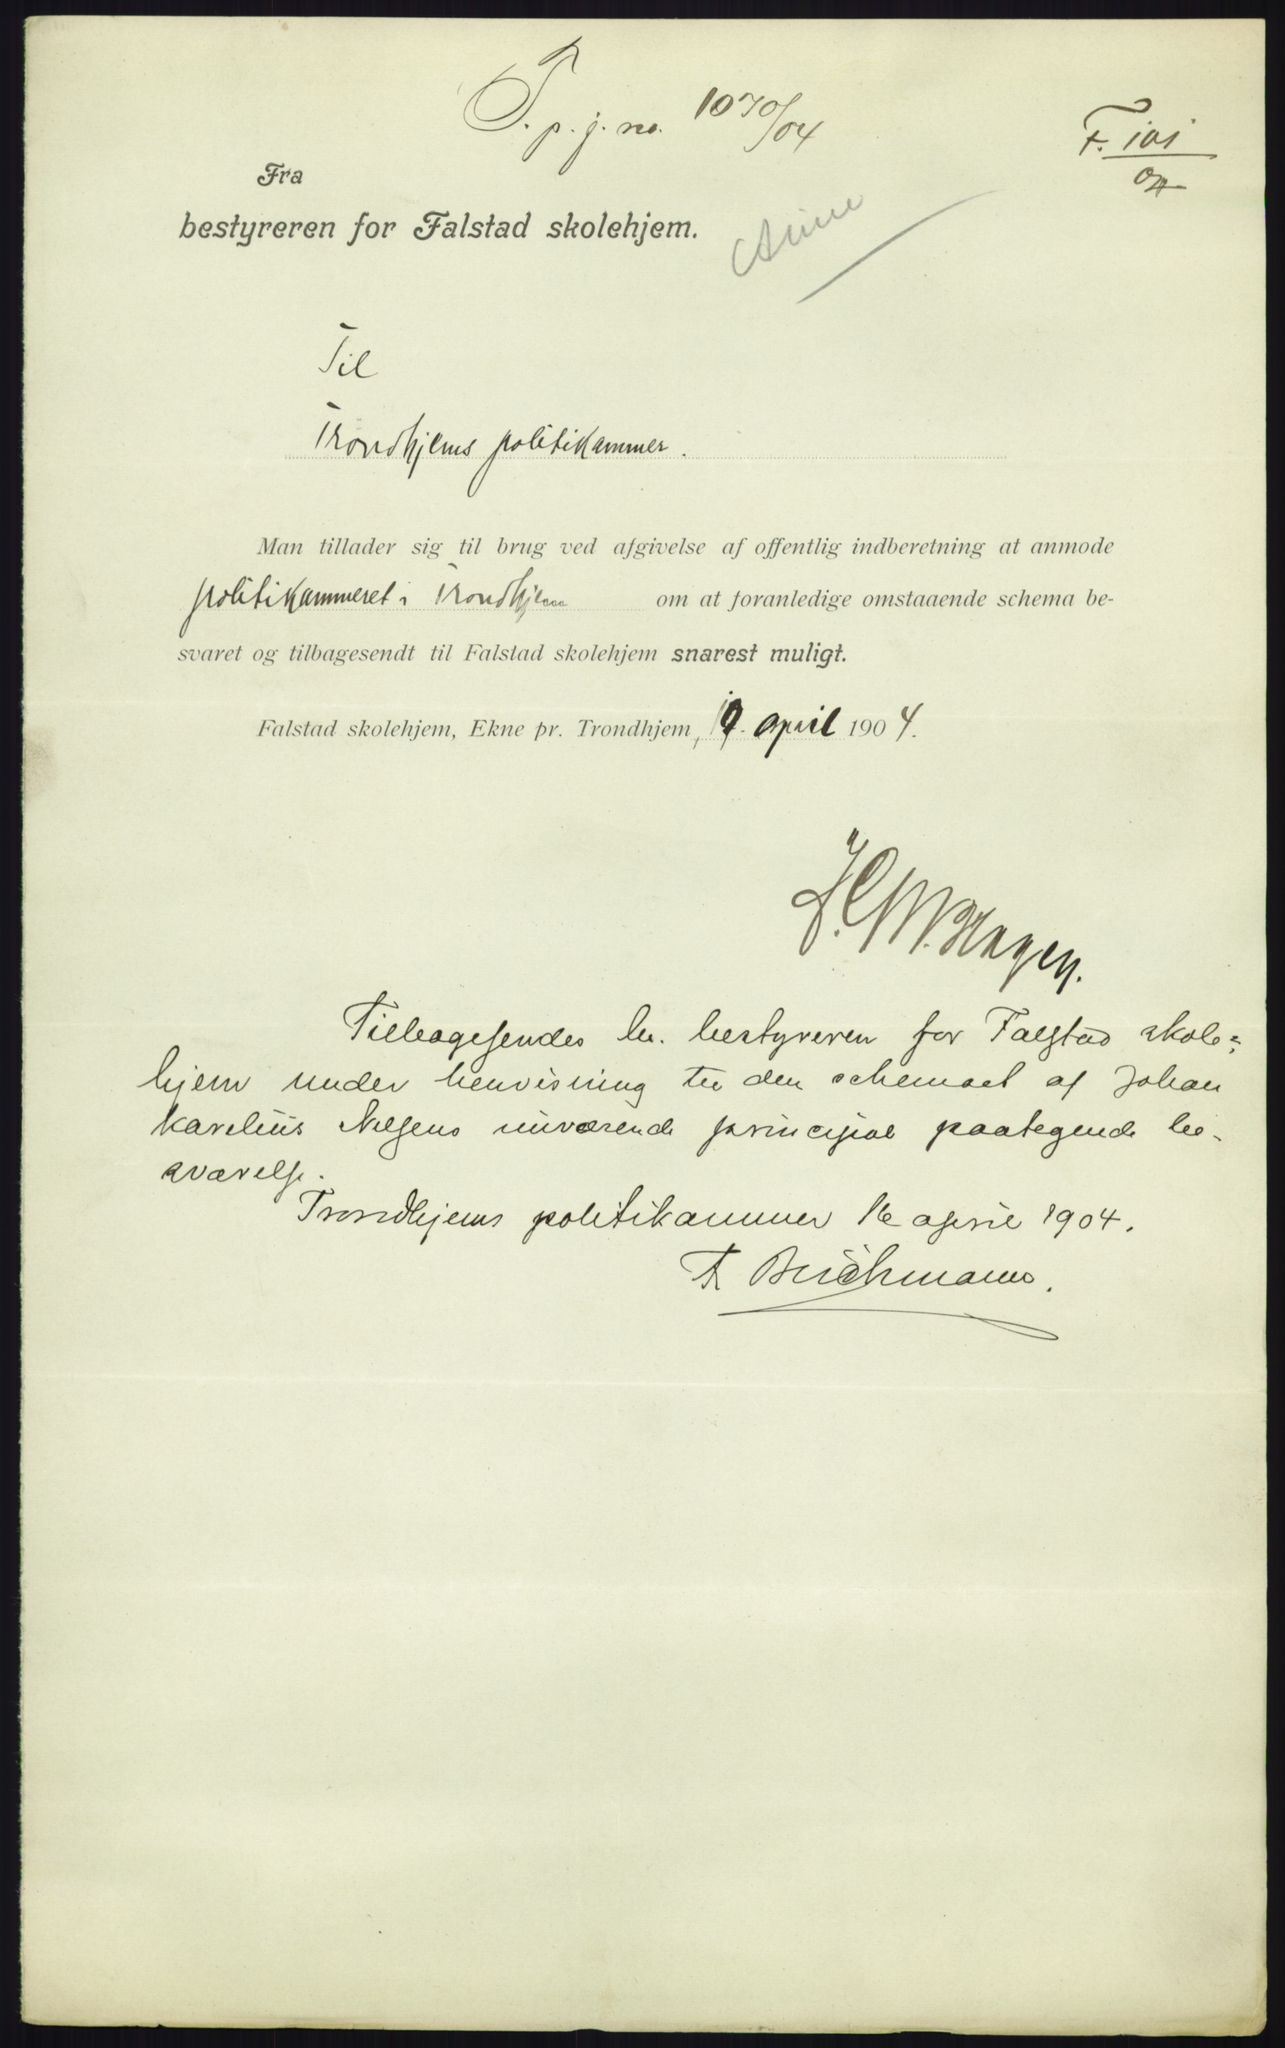 T. p. j. no. 1070/04
F. 101
04
Fra
bestyreren for Falstad skolehjem.
Til
Trondhjems politikammer.
Man tillader sig til brug ved afgivelse af offentlig indberetning at anmode
politikammeret i Trondhjem om at foranledige omstaaende schema be-
svaret og tilbagesendt til Falstad skolehjem snarest muligt.
Falstad skolehjem, Ekne pr. Trondhjem, 9. april 1904.
Hagen.
Tilbagesendes hr. bestyreren for Falstad skole=
hjem under henvisning til den schemaet af Johan
Karelius Nelsens nuværende principal paategnede be-
svarelse.
Trondhjems politikammer 16 april 1904.